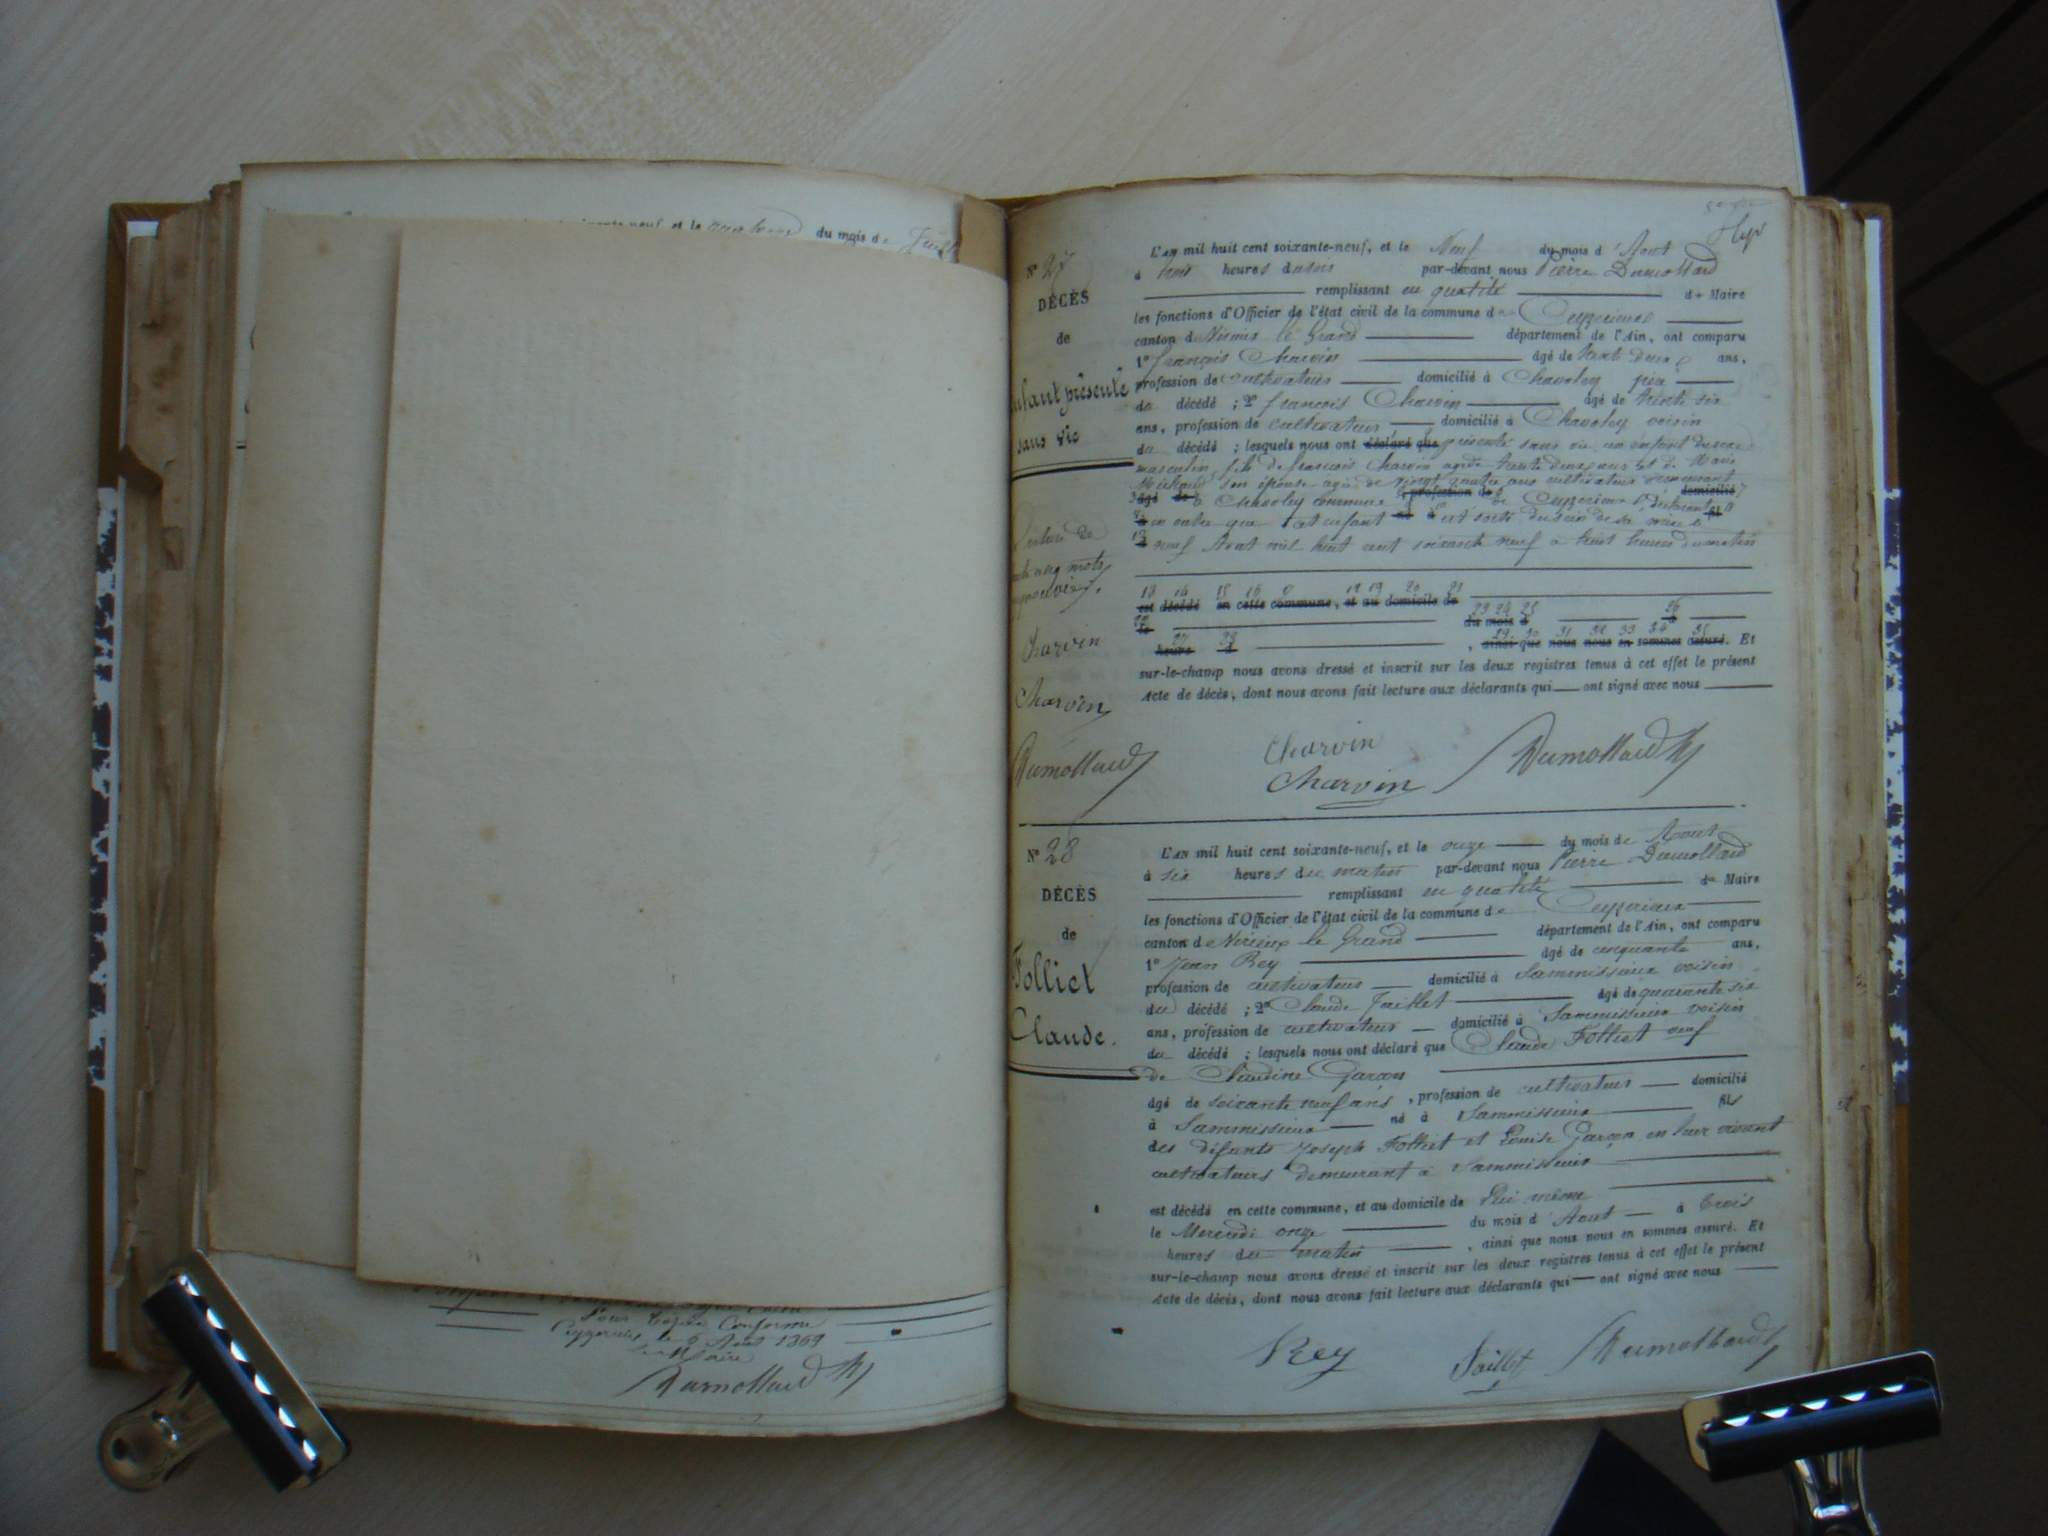 du mois de Juillet
Pour Copie Conforme
Ceyzerieu le 6 Aout 1869
Le Maire
Dumollard
N° 27
DÉCÈS
de
Enfant présenté
sans vie
mots
Charvin
Charvin
Dumollard
L'AN mil huit cent soixante-neuf, et le Neuf du mois d'Aout
à heures du soir par-devant nous Pierre Dumollard
remplissant en qualité de Maire
les fonctions d'Officier de l'état civil de la commune de Ceyzerieu
canton de Virieu le Grand département de l'Ain, ont comparu
1° françois Charvin âgé de trente deux ans,
profession de cultivateur domicilié à Chavoley père
du décédé ; 2° françois Charvin âgé de trente six
ans, profession de cultivateur domicilié à Chavoley voisin
du décédé ; lesquels nous ont déclaré que présenté sans vie un enfant du sexe
masculin, fils de francois Charvin agé de trente deux ans et de Marie
son épouse agée de vingt quatre ans cultivateurs demeurant domicilié
âgé de à Chavoley commune profession de de Ceyzerieu
en outre que cet enfant né à est sorti du sein de sa mère le
neuf Aout mil huit cent soixante neuf à huit heures du matin
13 14 15 16 18 19 20 21
est décédé en cette commune, et au domicile de
22 23 24 25 26
le du mois d à
27 28 29 30 31 32 33 34 35
heure d , ainsi que nous nous en sommes assuré. Et
sur-le-champ nous avons dressé et inscrit sur les deux registres tenus à cet effet le présent
Acte de décès, dont nous avons fait lecture aux déclarants qui ont signé avec nous
Charvin
Charvin Dumollard
N° 28
DÉCÈS
de
Folliet
Claude.
L'AN mil huit cent soixante-neuf, et le onze du mois de Aout
à six heures du matin par-devant nous Pierre Dumollard
remplissant en qualité de Maire
les fonctions d'Officier de l'état civil de la commune de Ceyzerieu
canton de Virieux le Grand département de l'Ain, ont comparu
1° Jean Rey âgé de cinquante ans,
profession de cultivateur domicilié à Sammissieux voisin
du décédé ; 2° Claude Jaillet âgé de quarante six
ans, profession de cultivateur domicilié à Sammissieux voisin
du décédé ; lesquels nous ont déclaré que Claude Folliet veuf
de Claudine Garçon
âgé de soixante neuf ans, profession de cultivateur domicilié
à Sammissieux né à Sammissieux fils
des défunts Joseph Folliet et Louise Garçon en leur vivant
cultivateurs demeurant à Sammissieux
est décédé en cette commune, et au domicile de Lui même
le Mercredi onze du mois d'Aout à trois
heures du matin , ainsi que nous nous en sommes assuré. Et
sur-le-champ nous avons dressé et inscrit sur les deux registres tenus à cet effet le présent
Acte de décès, dont nous avons fait lecture aux déclarants qui ont signé avec nous
Rey Jaillet Dumollard